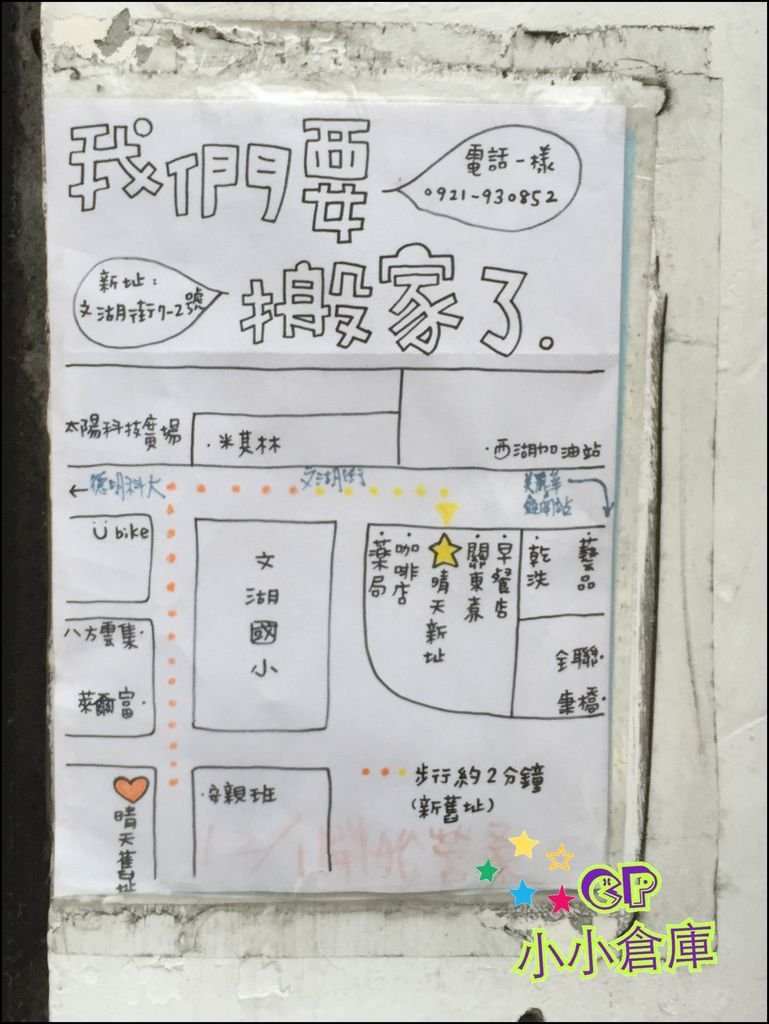 我們要
電話一樣
0921-930852
新址：
文湖街7-2號
搬家了.
太陽科技廣場
·米其林
·西湖加油站
←德明科大
文湖街
美麗華
Ü bike
文湖國小
藥局
咖啡店
晴天新址
關東煮
早餐店
乾洗
藝品
八方雲集·
萊爾富·
全聯·
康橋·
晴天舊址
·安親班
步行約2分鐘
(新舊址)
12/1開始營業
GP
小小倉庫